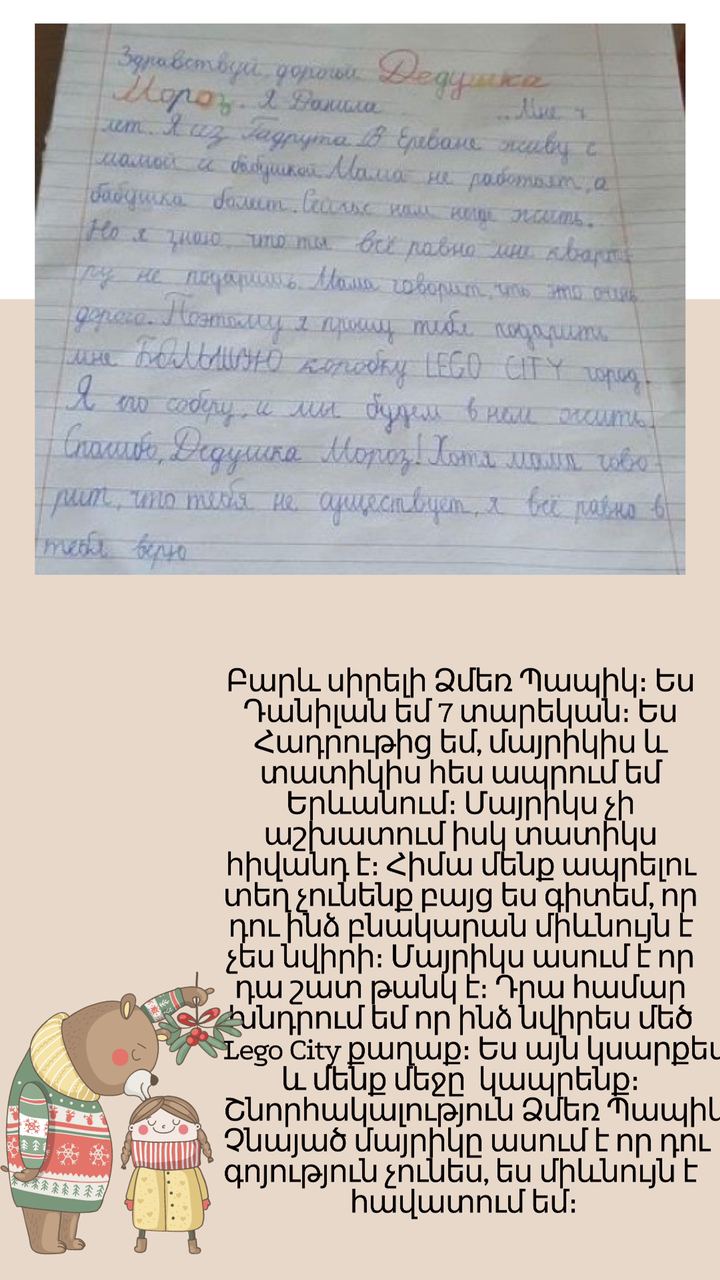 Здравствуй, дорогой Дедушка
Мороз. Я Данила Мне 7
лет. Я из Гадрута. В Ереване живу с
мамой и бабушкой. Мама не работает, а
бабушка болеет. Сейчас нам негде жить.
Но я знаю, что ты всё равно мне кварти-
ру не подаришь. Мама говорит, что это очень
дорого. Поэтому я прошу тебя подарить
мне БОЛЬШУЮ коробку LEGO CITY город.
Я его соберу, и мы будем в нем жить.
Спасибо, Дедушка Мороз! Хотя мама гово-
рит, что тебя не существует, я всё равно в
тебя верю
Բարև սիրելի Ձմեռ Պապիկ։ Ես
Դանիլան եմ 7 տարեկան։ Ես
Հադրութից եմ, մայրիկիս և
տատիկիս հես ապրում եմ
Երևանում։ Մայրիկս չի
աշխատում իսկ տատիկս
հիվանդ է։ Հիմա մենք ապրելու
տեղ չունենք բայց ես գիտեմ, որ
դու ինձ բնակարան միևնույն է
չես նվիրի։ Մայրիկս ասում է որ
դա շատ թանկ է։ Դրա համար
խնդրում եմ որ ինձ նվիրես մեծ
Lego City քաղաք։ Ես այն կսարքես
և մենք մեջը կապրենք։
Շնորհակալություն Ձմեռ Պապիկ
Չնայած մայրիկը ասում է որ դու
գոյություն չունես, ես միևնույն է
հավատում եմ։